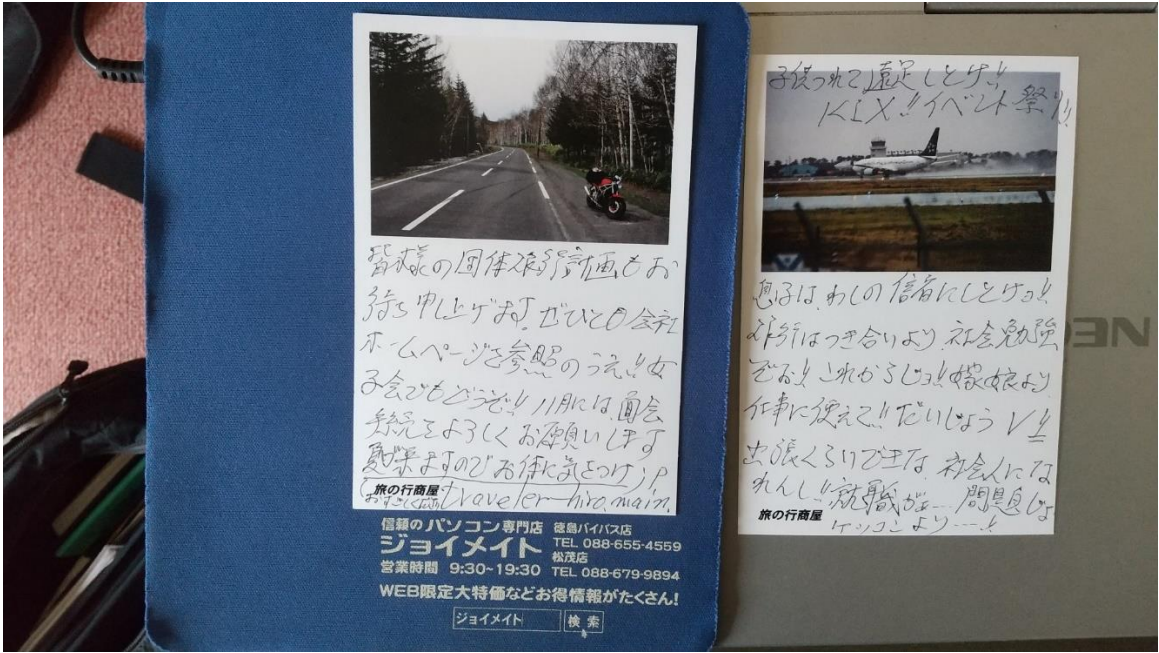 皆様の団体旅行計画もお
待ち申し上げます。ぜひとも会社
ホームページを参照のうえ!!女
子会でもどうぞ!! 11月には、面会
手続をよろしくお願いします
夏が来ますのでお体に気をつけ!?
旅の行商屋 traveler-hiro.main.
信頼のパソコン専門店 徳島バイパス店
ジョイメイト TEL 088-655-4559
松茂店
営業時間 9:30~19:30 TEL 088-679-9894
WEB限定大特価などお得情報がたくさん!
ジョイメイト 検索
子供つれて遠足しとけ!!
KIX!!イベント祭り!!
息子は、わしの信者にしとけョ!!
旅行はつき合いより、社会勉強
ぞお!! これからじョ!! 嫁娘より
仕事に使えて!! だいじょうV!!
出張くらいできな、社会人にな
れんし!! 就職がぁ… 問題じょ
旅の行商屋 ケッコンより……!!
NEC